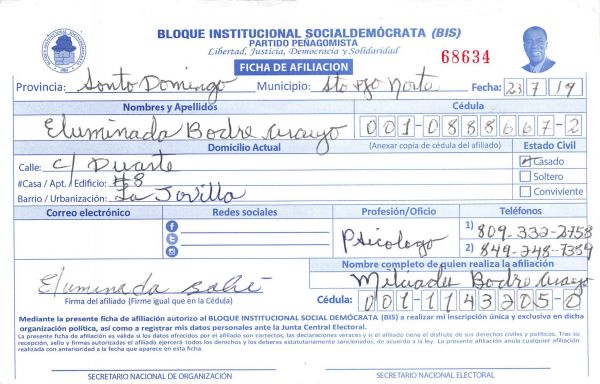 BLOQUE INSTITUCIONAL SOCIALDEMÓCRATA (BIS)
PARTIDO PEÑAGOMISTA
Libertad, Justicia, Democracia y Solidaridad
68634
FICHA DE AFILIACION
Provincia: Santo Domingo Municipio: Sto Dgo Norte Fecha: 23 7 19
Nombres y Apellidos Cédula
Eluminada Bodre Araujo 001-0888667-2
Domicilio Actual (Anexar copia de cédula del afiliado) Estado Civil
Calle: C/ Duarte Casado
#Casa / Apt. / Edificio: #8 Soltero
Barrio / Urbanización: La Javilla Conviviente
Correo electrónico Redes sociales Profesión/Oficio Teléfonos
Psicologo 1) 809-332-2758
2) 849-248-7359
Nombre completo de quien realiza la afiliación
Eluminada Milciades Bodre Araujo
Firma del afiliado (Firme igual que en la Cédula) Cédula: 001-1143205-0
Mediante la presente ficha de afiliación autorizo al BLOQUE INSTITUCIONAL SOCIAL DEMÓCRATA (BIS) a realizar mi inscripción única y exclusiva en dicha
organización política, así como a registrar mis datos personales ante la Junta Central Electoral.
La presente ficha de afiliación es válida si los datos ofrecidos por el afiliado son correctos, las declaraciones veraces y si el afiliado tiene el disfrute de sus derechos civiles y políticos. Tras su
recepción, sello y firmas autorizadas el afiliado ejercerá todos los derechos y los deberes estatutariamente sancionados, de acuerdo a la ley. La presente afiliación anula cualquier afiliación
realizada con anterioridad a la fecha que aparece en esta ficha.
SECRETARIO NACIONAL DE ORGANIZACIÓN SECRETARIO NACIONAL ELECTORAL